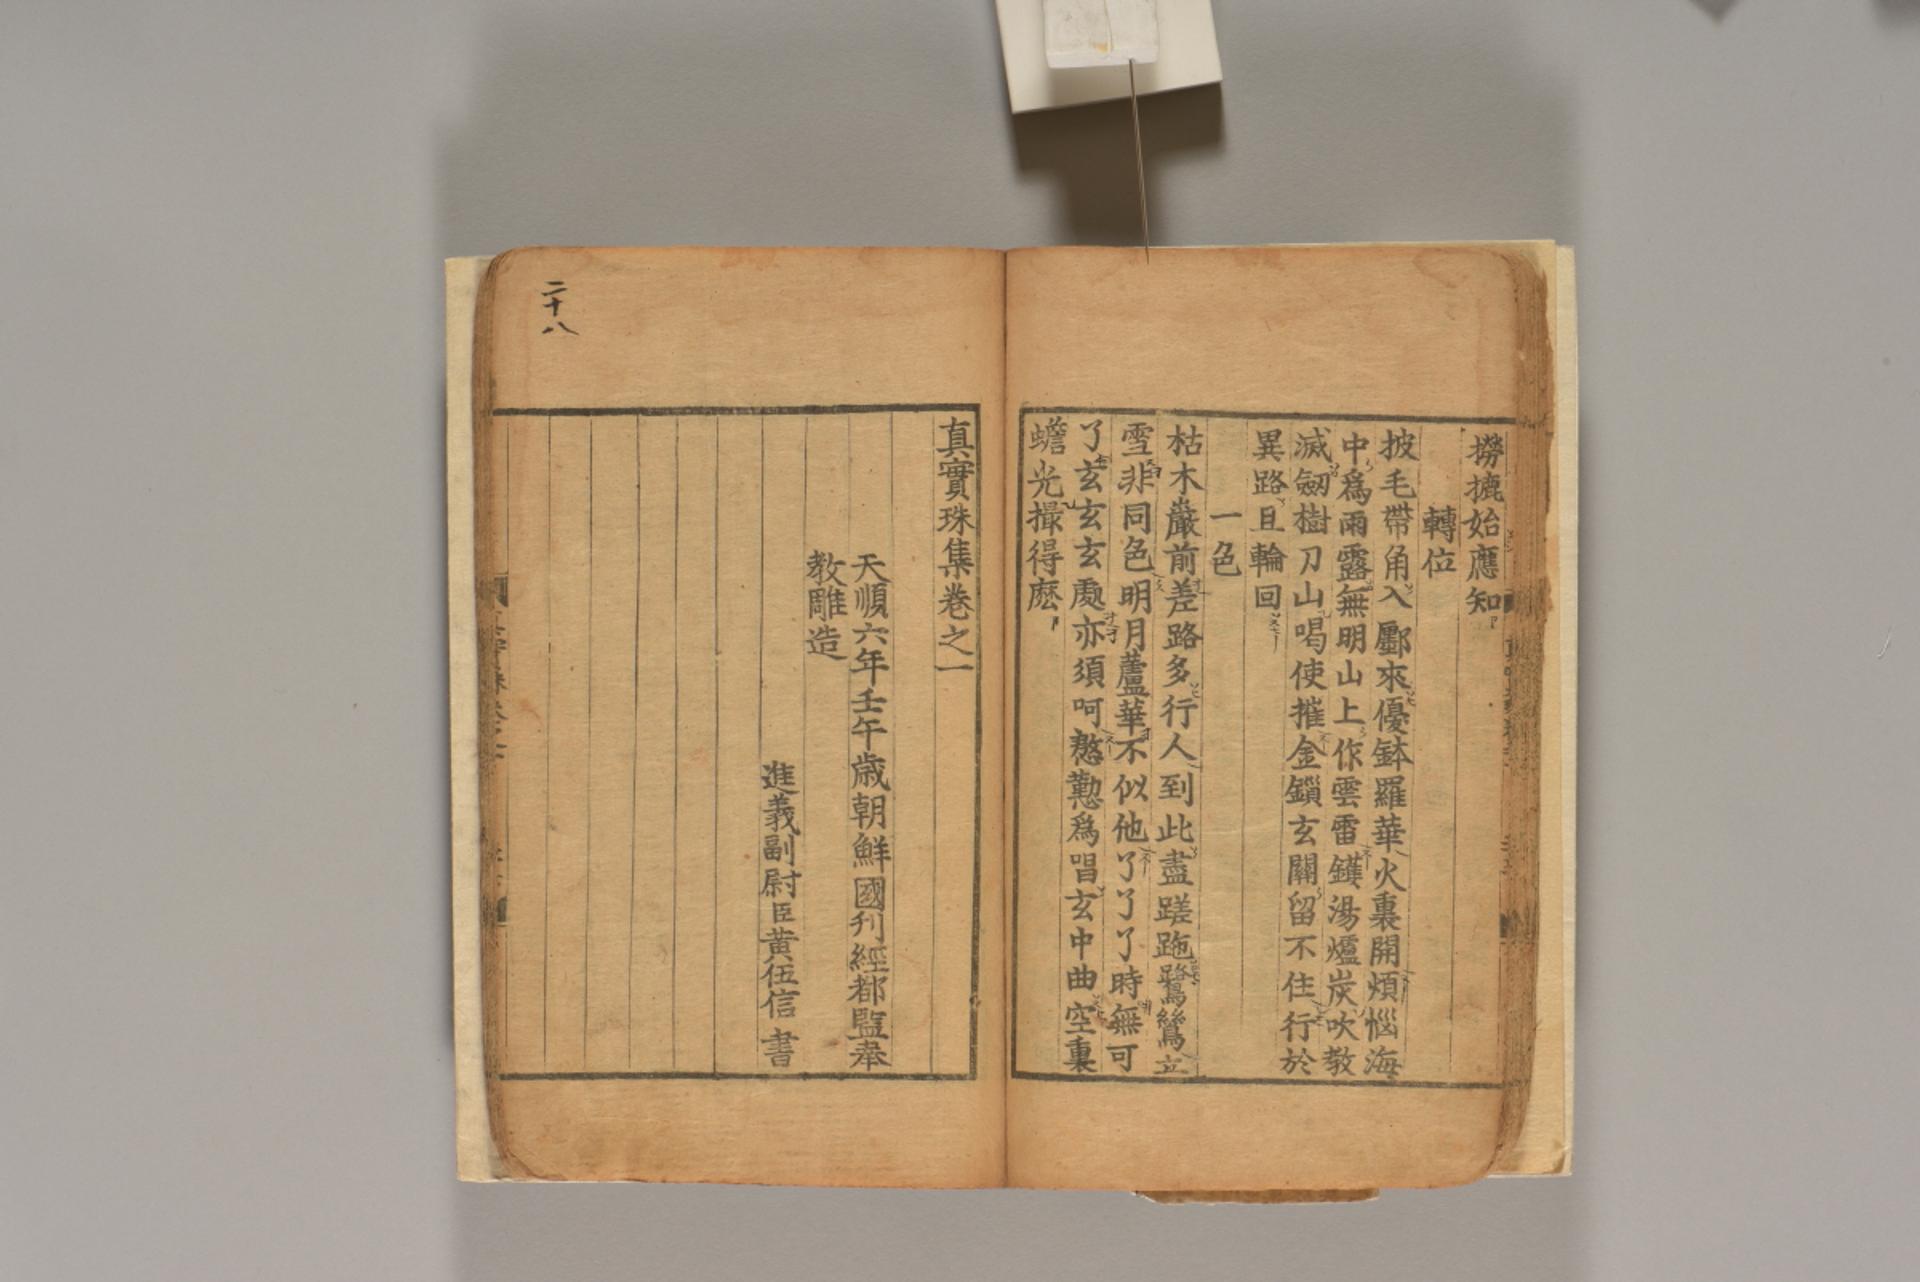 撈摝始應知
轉位
披毛帶角入鄽來優鉢羅華火裏開煩惱海
中爲雨露無明山上作雲雷鑊湯爐炭吹教
滅劒樹刀山喝使摧金鎖玄關留不住行於
異路且輪回
一色
枯木巖前差路多行人到此盡蹉跎鷺鷥立
雪非同色明月蘆華不似他了了了時無可
了玄玄玄處亦須呵慇懃爲唱玄中曲空裏
蟾光撮得麽
二十八
真實珠集卷之一
天順六年壬午歲朝鮮國刊經都監奉
教雕造
進義副尉臣黃伍信書